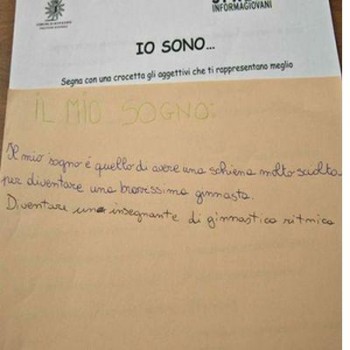 INFORMAGIOVANI
IO SONO...
Segna con una crocetta gli aggettivi che ti rappresentano meglio
IL MIO SOGNO:
Il mio sogno è quello di avere una schiena molto sciolta
per diventare una bravissima ginnasta.
Diventare un insegnante di ginnastica ritmica